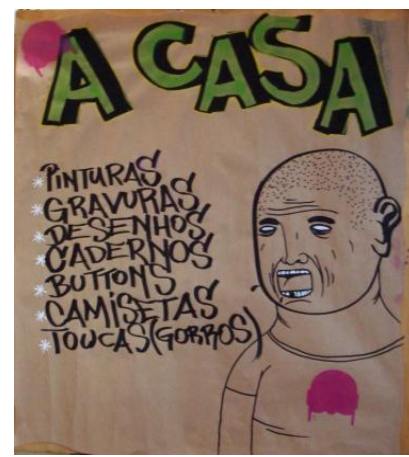 A CASA
*PINTURAS
*GRAVURAS
*DESENHOS
*CADERNOS
*BUTTONS
*CAMISETAS
*TOUCAS(GORROS)